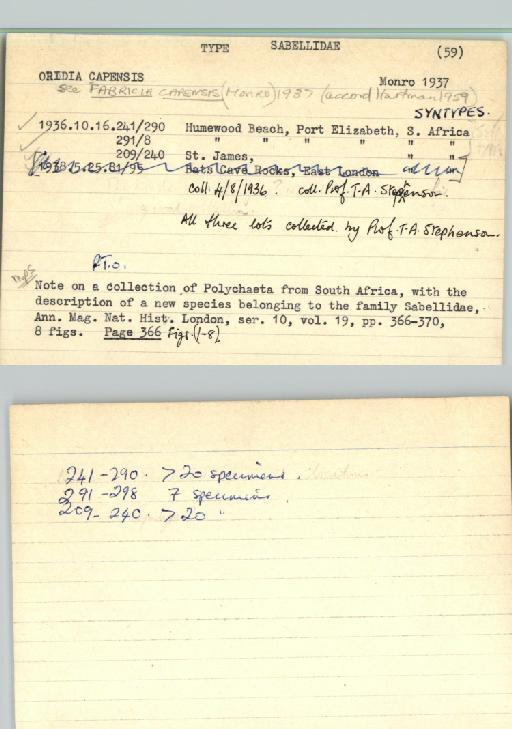 TYPE SABELLIDAE (59)
ORIDIA CAPENSIS Monro 1937
see FABRICIA CAPENSIS (Monro) 1937 (accord Hartman 1959)
SYNTYPES.
1936.10.16.241/290 Humewood Beach, Port Elizabeth, S. Africa
291/8 " " " " " "
209/240 St. James, " "
1938.5.25.81/95 Bats Cave Rocks, East London
coll. 4/8/1936. coll. Prof. T.A. Stephenson.
All three lots collected by Prof. T.A. Stephenson.
P.T.O.
Note on a collection of Polychaeta from South Africa, with the
description of a new species belonging to the family Sabellidae,
Ann. Mag. Nat. Hist. London, ser. 10, vol. 19, pp. 366-370,
8 figs. Page 366 Figs. (1-8)
241-290. >20 specimens.
291-298 7 specimens.
209-240. >20 "